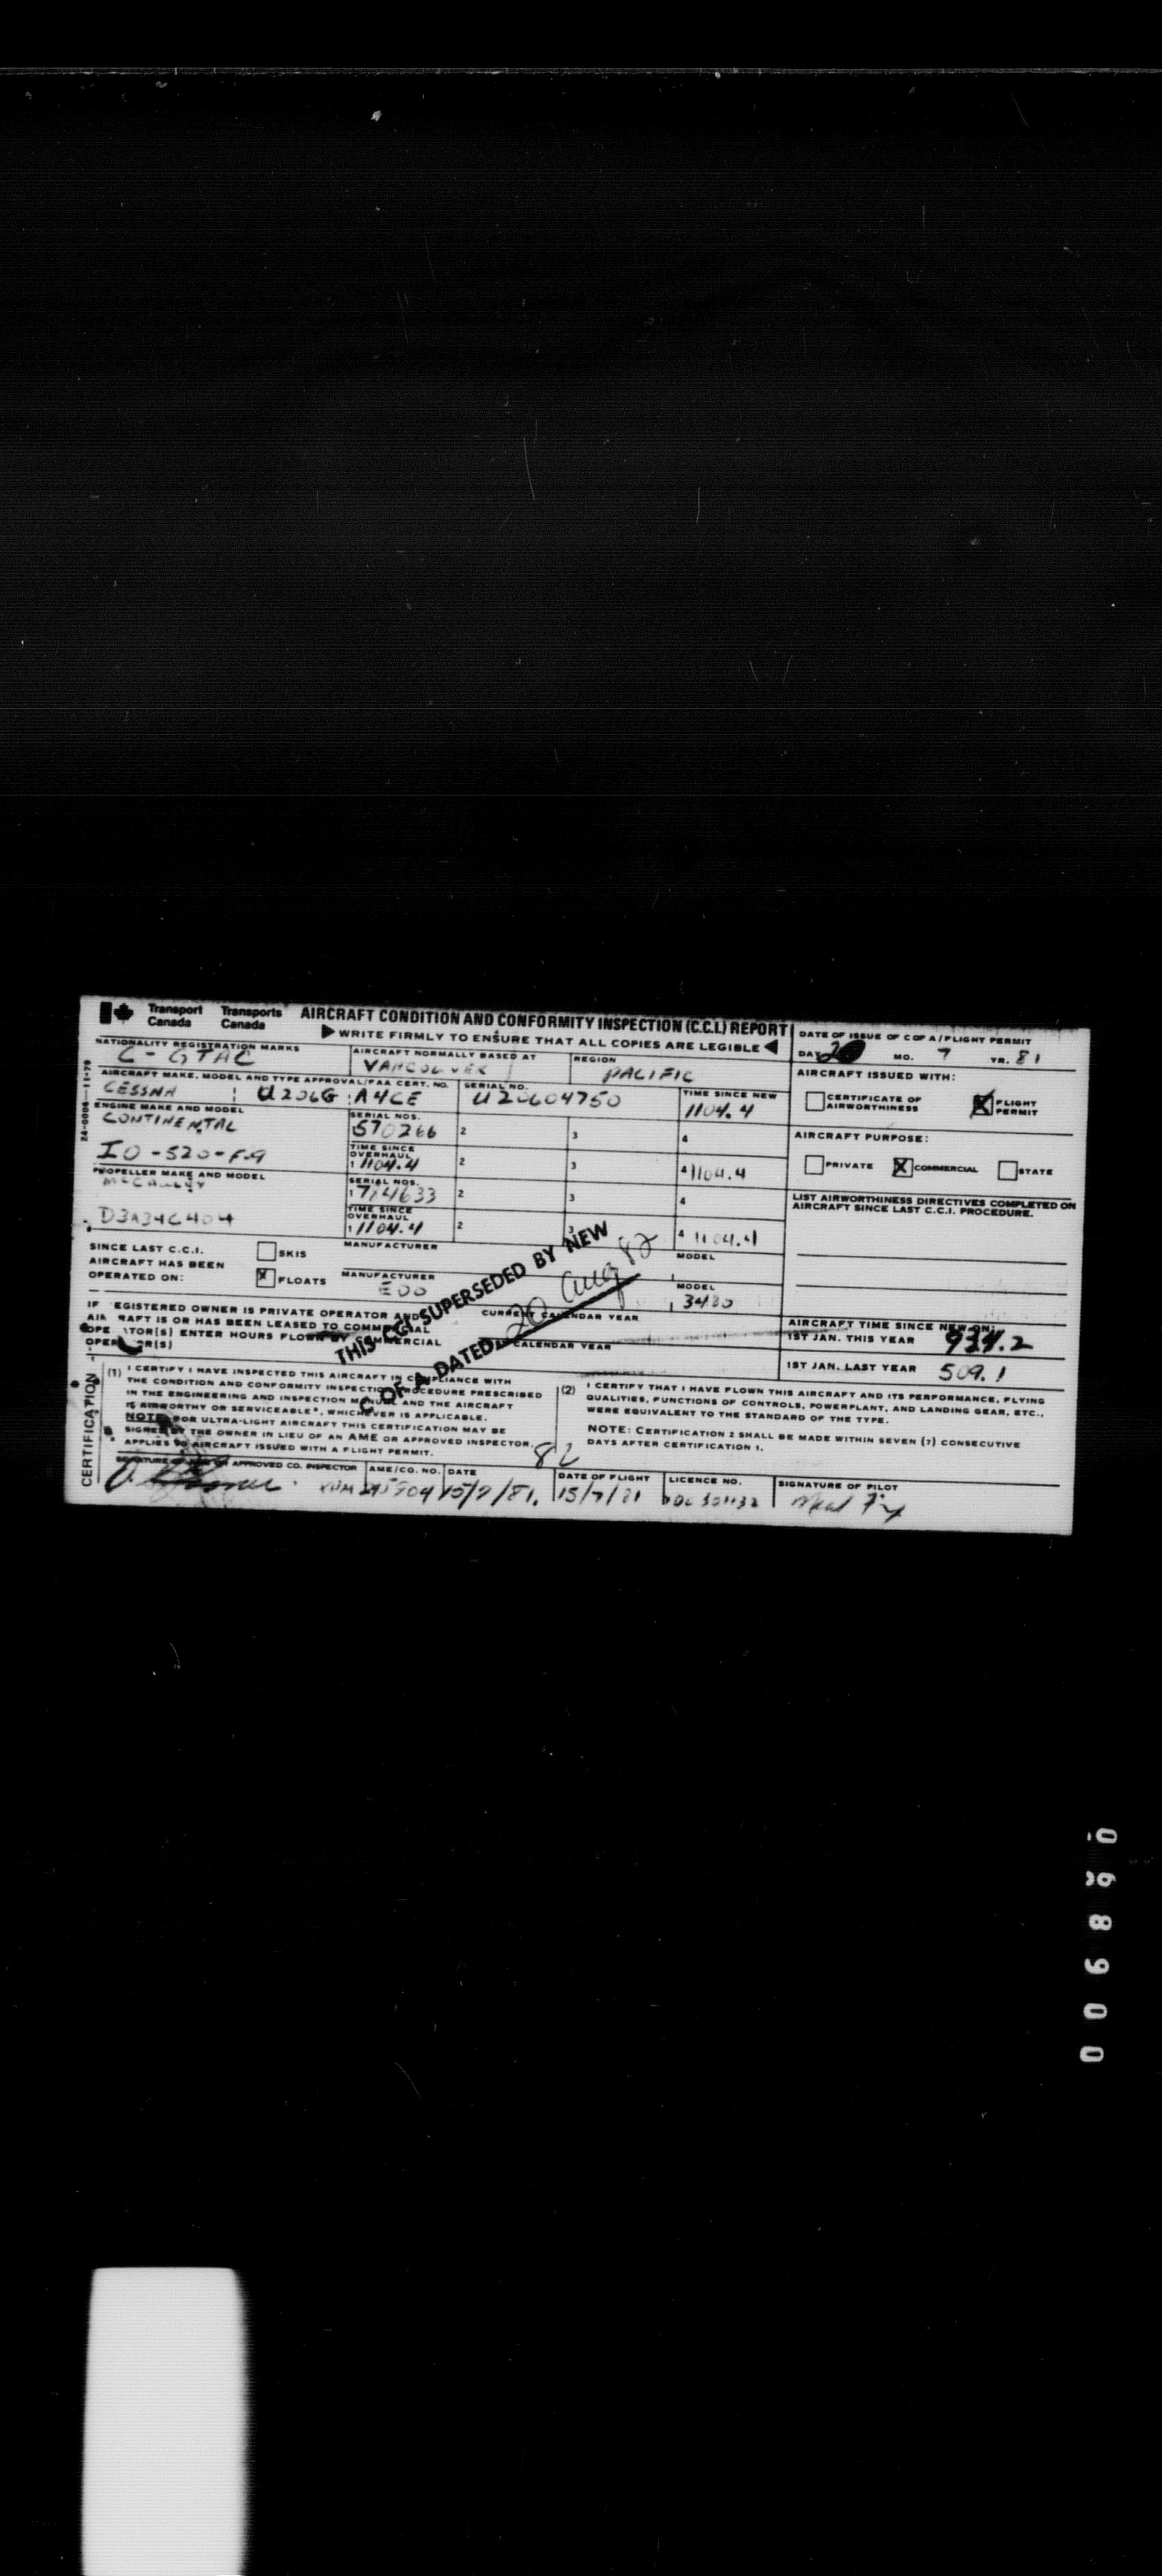 Transport Canada Transports Canada
AIRCRAFT CONDITION AND CONFORMITY INSPECTION (C.C.I.) REPORT
WRITE FIRMLY TO ENSURE THAT ALL COPIES ARE LEGIBLE
DATE OF ISSUE OF C OF A/FLIGHT PERMIT
DAY 20 MO. 7 YR. 81
NATIONALITY REGISTRATION MARKS
C-GTAC
AIRCRAFT NORMALLY BASED AT
VANCOUVER
REGION
PACIFIC
AIRCRAFT MAKE, MODEL AND TYPE APPROVAL/FAA CERT. NO.
CESSNA U206G A4CE
SERIAL NO.
U20604750
TIME SINCE NEW
1104.4
AIRCRAFT ISSUED WITH:
CERTIFICATE OF AIRWORTHINESS
X FLIGHT PERMIT
ENGINE MAKE AND MODEL
CONTINENTAL
IO-520-F-9
SERIAL NOS.
570266 2 3 4
TIME SINCE OVERHAUL
1 1104.4 2 3 4 1104.4
AIRCRAFT PURPOSE:
PRIVATE X COMMERCIAL STATE
PROPELLER MAKE AND MODEL
McCAULEY
D3A34C404
SERIAL NOS.
1 714633 2 3 4
TIME SINCE OVERHAUL
1 1104.4 2 3 4 1104.4
LIST AIRWORTHINESS DIRECTIVES COMPLETED ON
AIRCRAFT SINCE LAST C.C.I. PROCEDURE.
SINCE LAST C.C.I.
AIRCRAFT HAS BEEN
OPERATED ON:
SKIS
X FLOATS
MANUFACTURER
MODEL
MANUFACTURER
EDO
MODEL
3430
THIS CCI SUPERSEDED BY NEW
C OF A DATED 20 Aug 82
IF EGISTERED OWNER IS PRIVATE OPERATOR AND
AIR RAFT IS OR HAS BEEN LEASED TO COMMERCIAL
OPE TOR(S) ENTER HOURS FLOWN BY COMMERCIAL
OPER OR(S)
CURRENT CALENDAR YEAR
CALENDAR YEAR
AIRCRAFT TIME SINCE NEW ON:
1ST JAN. THIS YEAR 934.2
1ST JAN. LAST YEAR 509.1
CERTIFICATION
(1) I CERTIFY I HAVE INSPECTED THIS AIRCRAFT IN COMPLIANCE WITH
THE CONDITION AND CONFORMITY INSPECTION PROCEDURE PRESCRIBED
IN THE ENGINEERING AND INSPECTION MANUAL AND THE AIRCRAFT
IS AIRWORTHY OR SERVICEABLE*, WHICHEVER IS APPLICABLE.
NOTE: FOR ULTRA-LIGHT AIRCRAFT THIS CERTIFICATION MAY BE
SIGNED BY THE OWNER IN LIEU OF AN AME OR APPROVED INSPECTOR.
APPLIES TO AIRCRAFT ISSUED WITH A FLIGHT PERMIT.
(2) I CERTIFY THAT I HAVE FLOWN THIS AIRCRAFT AND ITS PERFORMANCE, FLYING
QUALITIES, FUNCTIONS OF CONTROLS, POWERPLANT, AND LANDING GEAR, ETC.,
WERE EQUIVALENT TO THE STANDARD OF THE TYPE.
NOTE: CERTIFICATION 2 SHALL BE MADE WITHIN SEVEN (7) CONSECUTIVE
DAYS AFTER CERTIFICATION 1.
82
SIGNATURE OF AME OR APPROVED CO. INSPECTOR
AME/CO. NO.
DATE
15/7/81.
DATE OF FLIGHT
15/7/81
LICENCE NO.
SIGNATURE OF PILOT
24-0006 11-79
006890